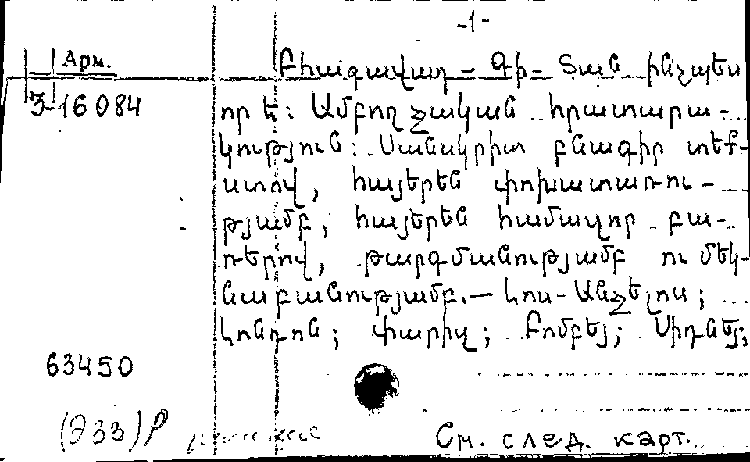 -1-
Арм.
Բհագավադ - Գի - Տան ինչպես
3-16084
որ է: Ամբողջական հրատարա-
կություն: Սանսկրիտ բնագիր տեք-
ստով, հայերեն փոխատառու-
թյամբ, հայերեն համազոր բա-
ռերով, թարգմանությամբ ու մեկ-
նաբանությամբ.— Լոս-Անջելոս;
Լոնդոն; Փարիզ; Բոմբեյ; Սիդնեյ;
63450
(Э33)Р
См. след. карт.